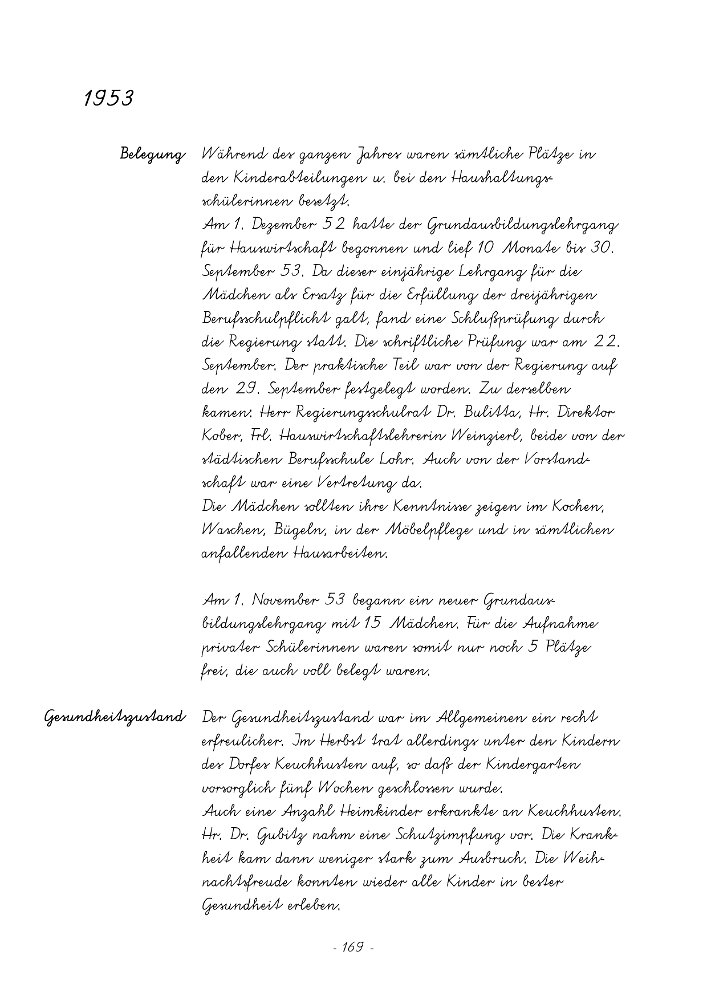 1953
Belegung Während des ganzen Jahres waren sämtliche Plätze in
den Kinderabteilungen u. bei den Haushaltungs-
schülerinnen besetzt.
Am 1. Dezember 52 hatte der Grundausbildungslehrgang
für Hauswirtschaft begonnen und lief 10 Monate bis 30.
September 53. Da dieser einjährige Lehrgang für die
Mädchen als Ersatz für die Erfüllung der dreijährigen
Berufsschulpflicht galt, fand eine Schlußprüfung durch
die Regierung statt. Die schriftliche Prüfung war am 22.
September. Der praktische Teil war von der Regierung auf
den 29. September festgelegt worden. Zu derselben
kamen: Herr Regierungsschulrat Dr. Bulitta, Hr. Direktor
Kober, Frl. Hauswirtschaftslehrerin Weinzierl, beide von der
städtischen Berufsschule Lohr. Auch von der Vorstand-
schaft war eine Vertretung da.
Die Mädchen sollten ihre Kenntnisse zeigen im Kochen,
Waschen, Bügeln, in der Möbelpflege und in sämtlichen
anfallenden Hausarbeiten.
Am 1. November 53 begann ein neuer Grundaus-
bildungslehrgang mit 15 Mädchen. Für die Aufnahme
privater Schülerinnen waren somit nur noch 5 Plätze
frei, die auch voll belegt waren.
Gesundheitszustand Der Gesundheitszustand war im Allgemeinen ein recht
erfreulicher. Im Herbst trat allerdings unter den Kindern
des Dorfes Keuchhusten auf, so daß der Kindergarten
vorsorglich fünf Wochen geschlossen wurde.
Auch eine Anzahl Heimkinder erkrankte an Keuchhusten.
Hr. Dr. Gubitz nahm eine Schutzimpfung vor. Die Krank-
heit kam dann weniger stark zum Ausbruch. Die Weih-
nachtsfreude konnten wieder alle Kinder in bester
Gesundheit erleben.
- 169 -